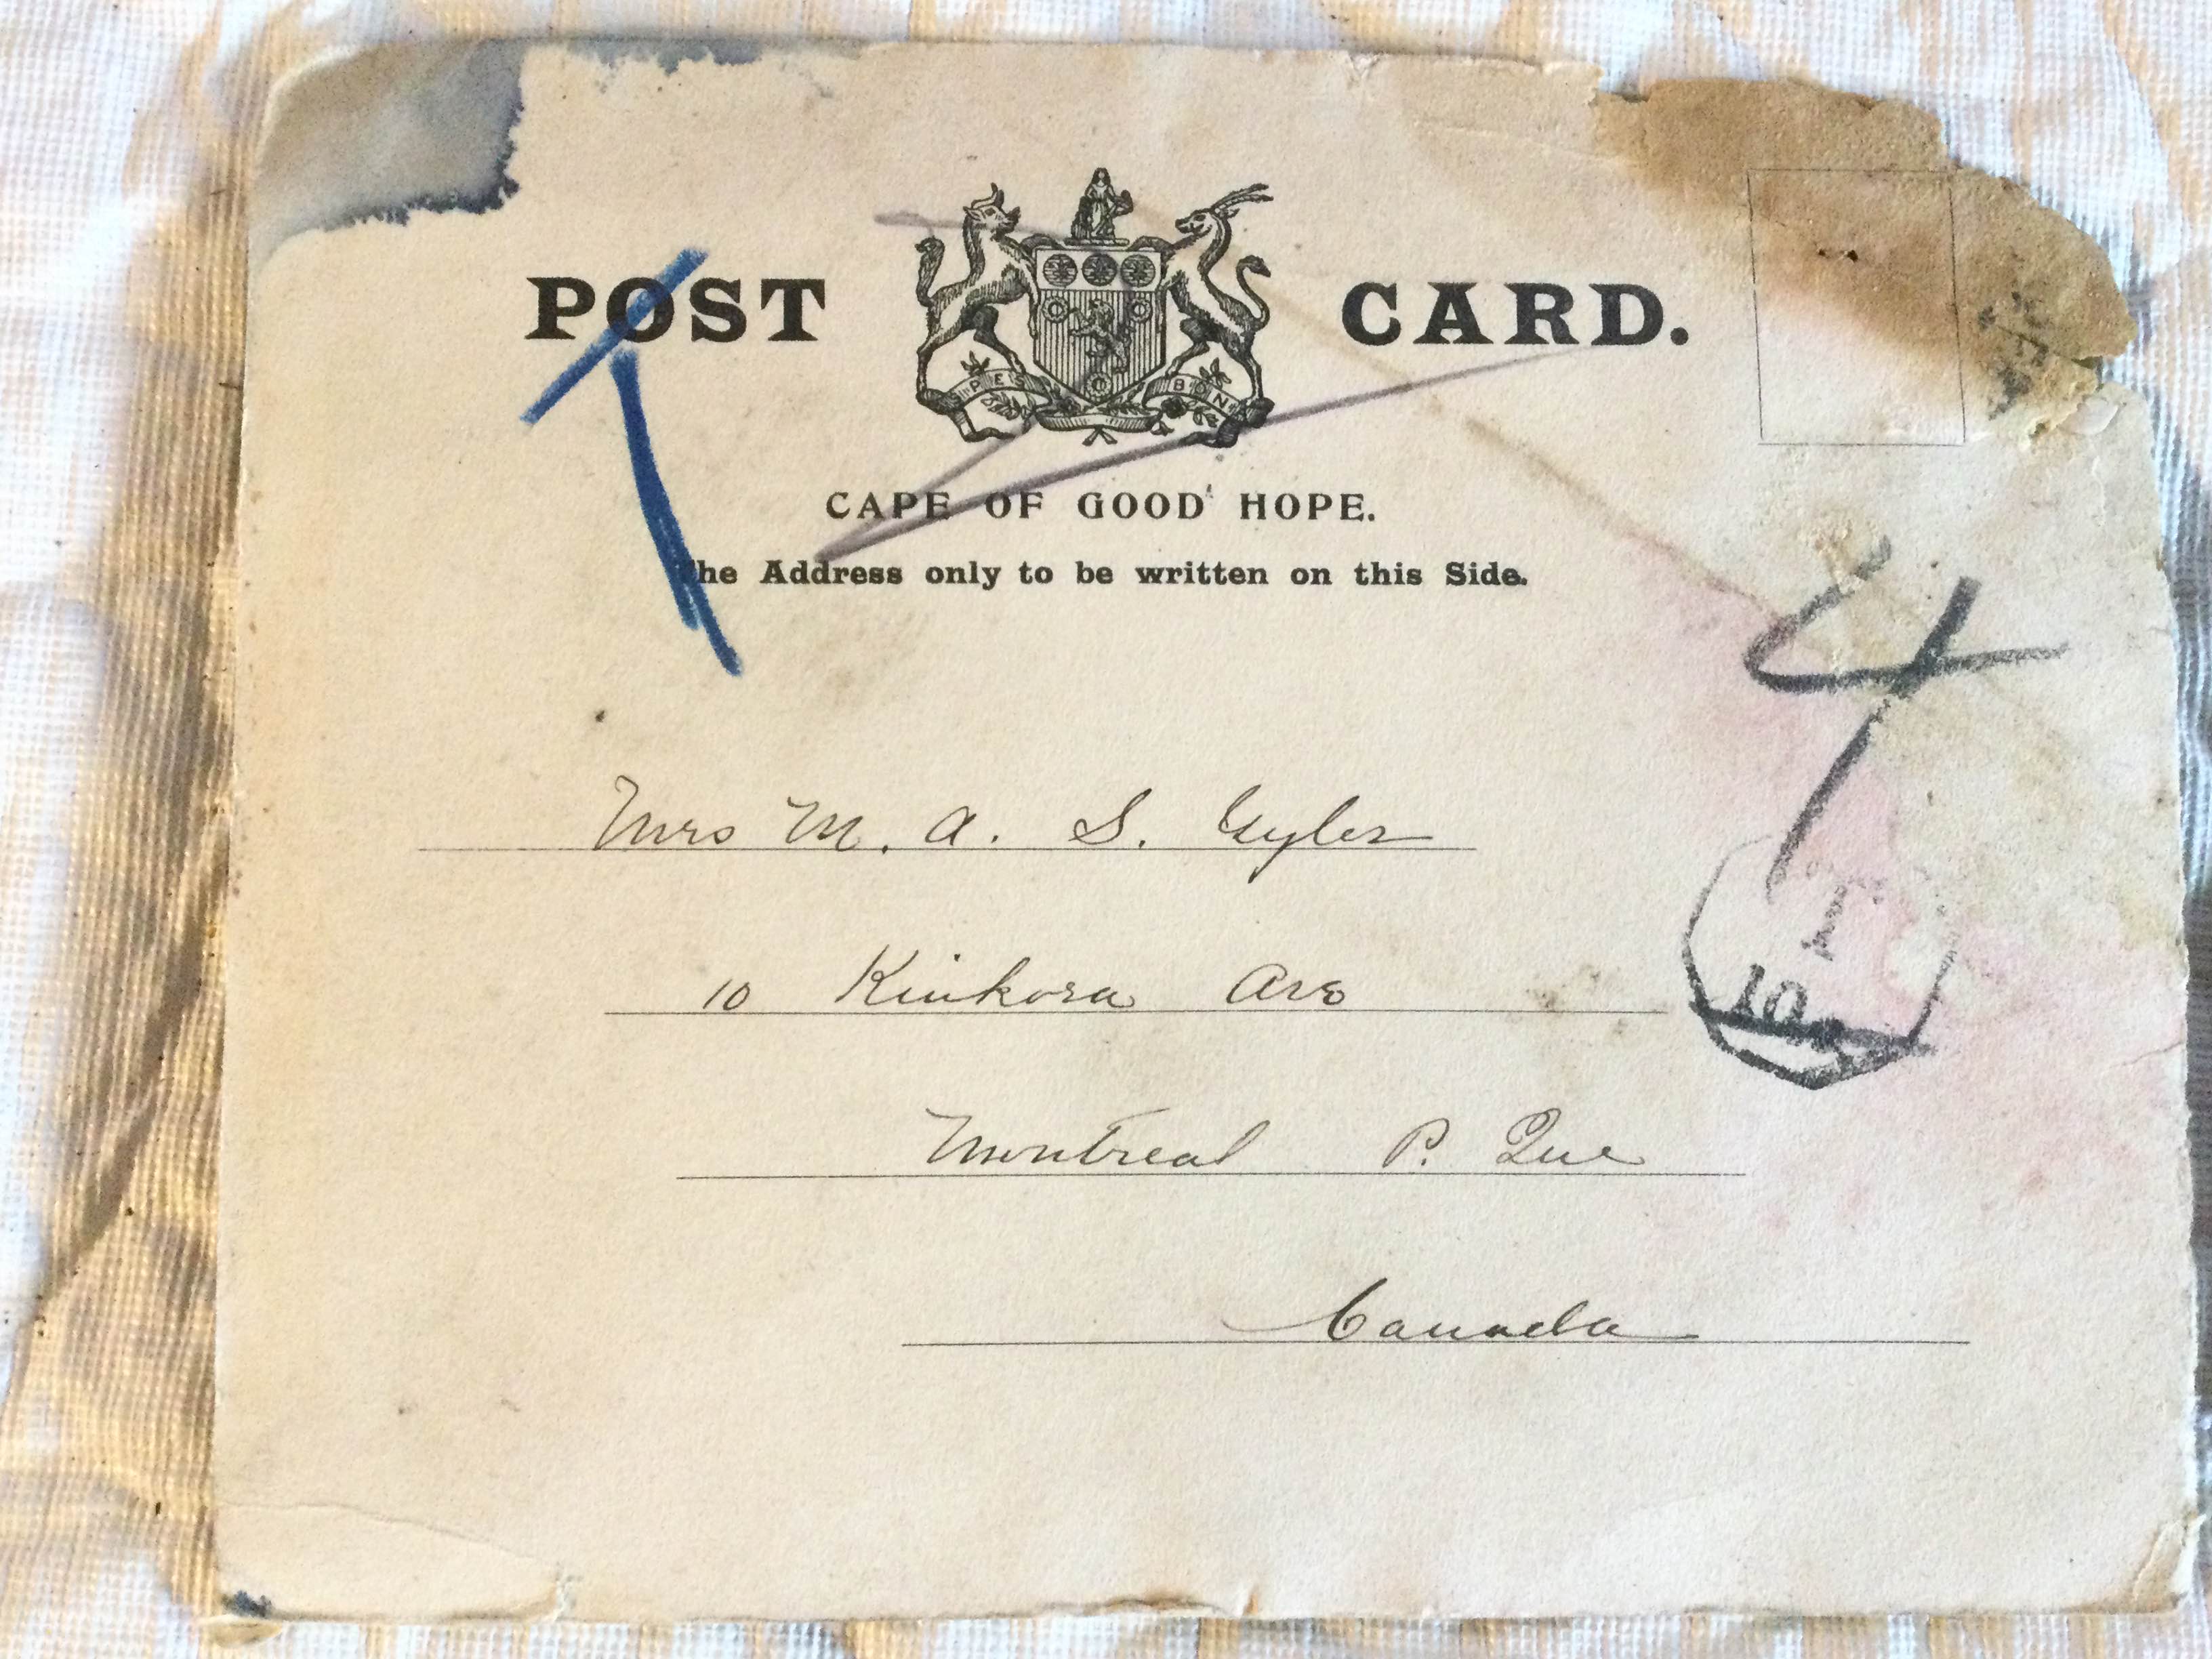 POST CARD.
SPES BONA
CAPE OF GOOD HOPE.
The Address only to be written on this Side.
T
4
T
10
Mrs M. A. S. Gyles
10 Kinkora Ave
Montreal P. Que
Canada